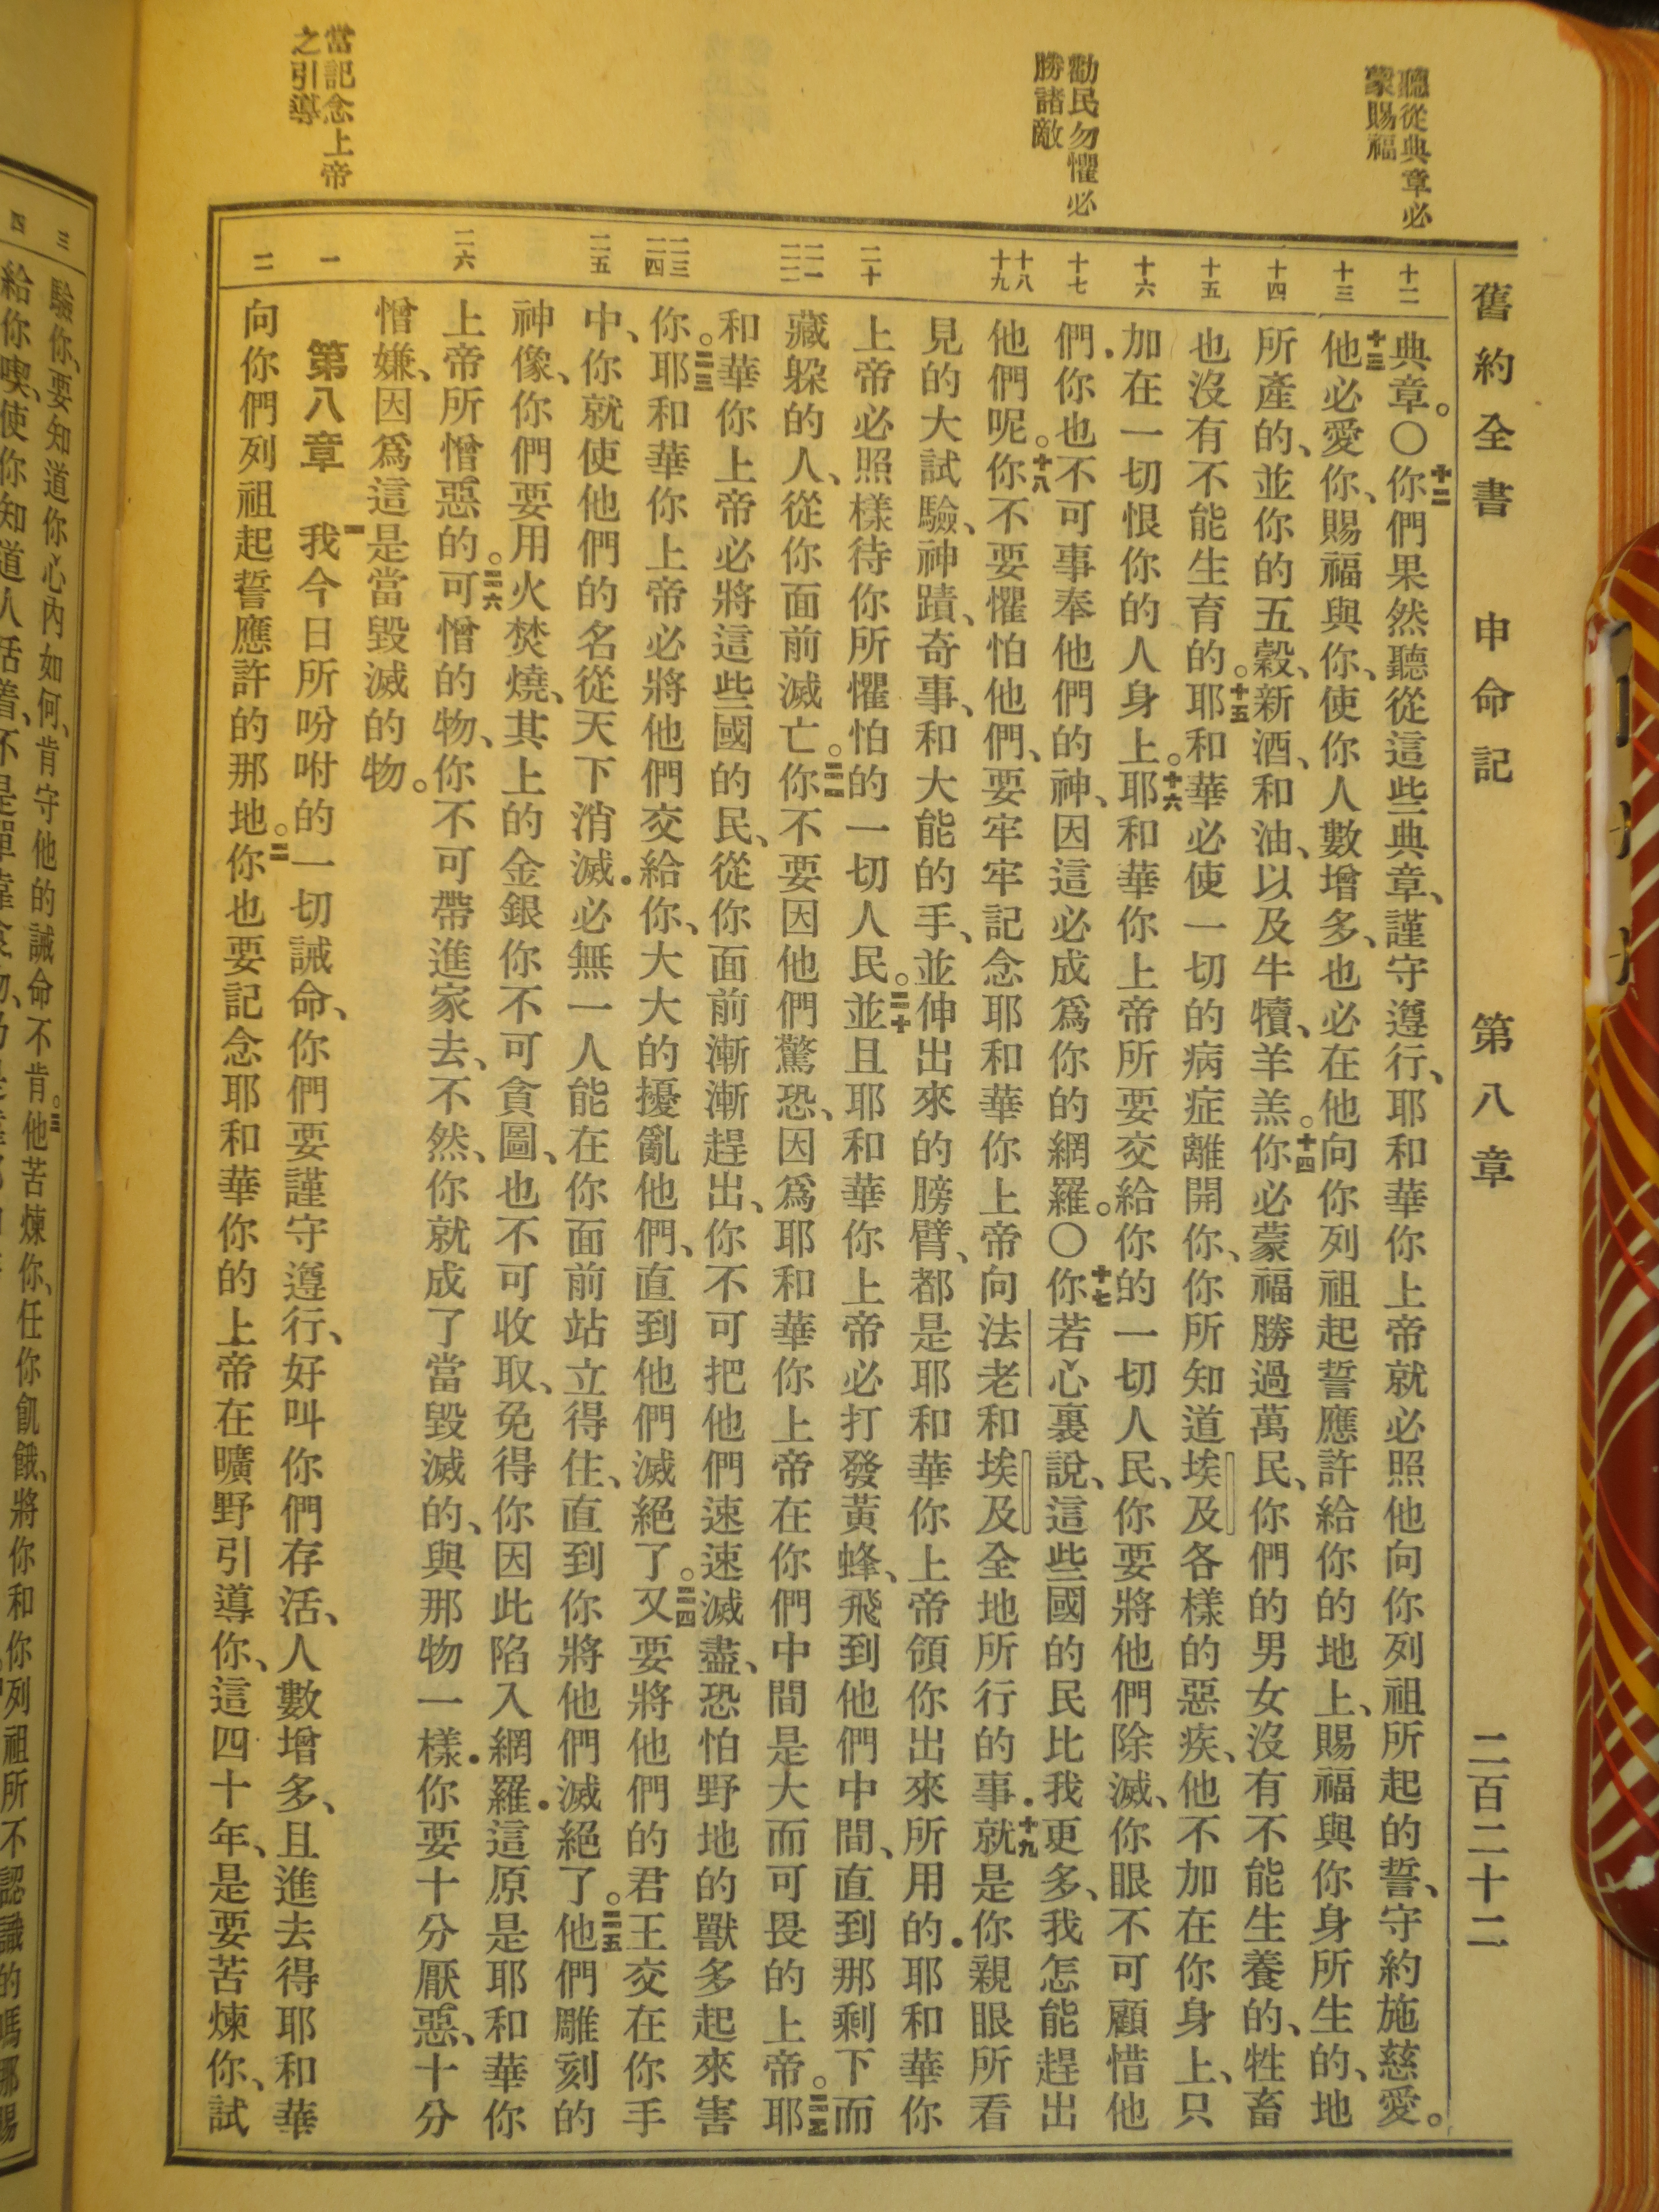 舊約全書　申命記　第八章　二百二十二
聽從典章必
蒙賜福
勸民勿懼必
勝諸敵
當記念上帝
之引導
十二
十三
十四
十五
十六
十七
十八
十九
二十
二一
二二
二三
二四
二五
二六
一
二
典章。〇十二你們果然聽從這些典章、謹守遵行、耶和華你上帝就必照他向你列祖所起的誓、守約施慈愛。
十三他必愛你、賜福與你、使你人數增多、也必在他向你列祖起誓應許給你的地上、賜福與你身所生的、地
所產的、並你的五穀、新酒、和油、以及牛犢、羊羔。十四你必蒙福勝過萬民、你們的男女沒有不能生養的、牲畜
也沒有不能生育的。十五耶和華必使一切的病症離開你、你所知道埃及各樣的惡疾、他不加在你身上、只
加在一切恨你的人身上。十六耶和華你上帝所要交給你的一切人民、你要將他們除滅、你眼不可顧惜他
們．你也不可事奉他們的神、因這必成爲你的網羅。〇十七你若心裏說、這些國的民比我更多、我怎能趕出
他們呢。十八你不要懼怕他們、要牢牢記念耶和華你上帝向法老和埃及全地所行的事．十九就是你親眼所看
見的大試驗、神蹟、奇事、和大能的手、並伸出來的膀臂、都是耶和華你上帝領你出來所用的．耶和華你
上帝必照樣待你所懼怕的一切人民。二十並且耶和華你上帝必打發黃蜂、飛到他們中間、直到那剩下而
藏躲的人、從你面前滅亡。二一你不要因他們驚恐、因爲耶和華你上帝在你們中間是大而可畏的上帝。二二耶
和華你上帝必將這些國的民、從你面前漸漸趕出、你不可把他們速速滅盡、恐怕野地的獸多起來害
你。二三耶和華你上帝必將他們交給你、大大的擾亂他們、直到他們滅絕了。二四又要將他們的君王交在你手
中、你就使他們的名從天下消滅．必無一人能在你面前站立得住、直到你將他們滅絕了。二五他們雕刻的
神像、你們要用火焚燒、其上的金銀你不可貪圖、也不可收取、免得你因此陷入網羅．這原是耶和華你
上帝所憎惡的。二六可憎的物、你不可帶進家去、不然、你就成了當毀滅的、與那物一樣．你要十分厭惡、十分
憎嫌、因爲這是當毀滅的物。
第八章　一我今日所吩咐的一切誡命、你們要謹守遵行、好叫你們存活、人數增多、且進去得耶和華
向你們列祖起誓應許的那地。二你也要記念耶和華你的上帝在曠野引導你、這四十年、是要苦煉你、試
三
四
驗你、要知道你心內如何、肯守他的誡命不肯。三他苦煉你、任你飢餓、將你和你列祖所不認識的嗎哪賜
給你喫、使你知道人活着、不是單靠食物、乃是靠